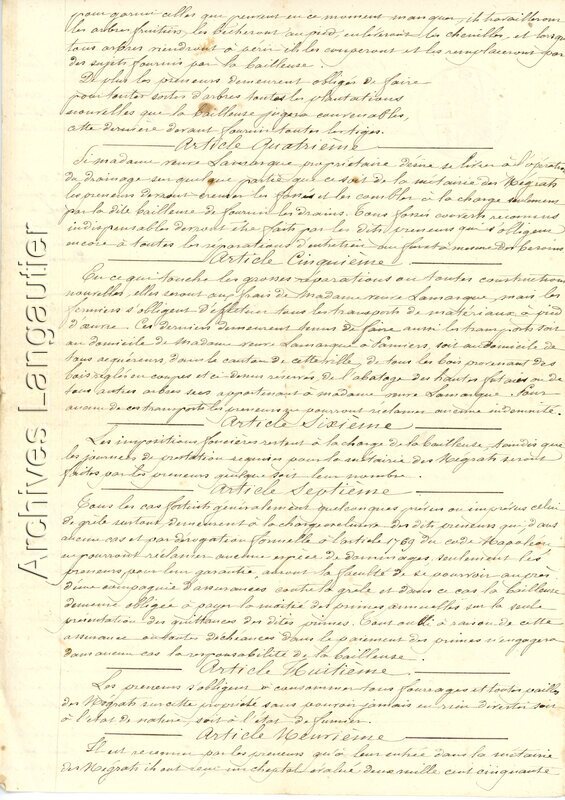 pour garnir celles qui peuvent en ce moment manquer, ils travailleront
les arbres fruitiers, les bêcheront au pied, enlèveront les chenilles, et lorsque
tous arbres viendront à périr ils les couperont et les remplaceront par
des sujets fournis par la bailleuse.
De plus les preneurs demeurent obligés de faire
pour toutes sortes d'arbres toutes les plantations
nouvelles que la bailleuse jugera convenables,
cette dernière devant fournir toutes les tiges.
Article Quatrième
Si madame veuve Lamarque propriétaire désire se livrer à l'opération
du drainage sur quelque partie que ce soit de la métairie des Négrats
les preneurs devront creuser les fossés et les combler à la charge seulement
par la dite bailleuse de fournir les drains. Tous fossés ouverts reconnus
indispensables devront être faits par les dits preneurs qui s'obligent
encore à toutes les réparations d'entretien au fur et à mesure des besoins
Article Cinquième
En ce qui touche les grosses réparations ou toutes constructions
nouvelles, elles seront aux frais de Madame veuve Lamarque, mais les
fermiers s'obligent d'effectuer tous les transports de matériaux à pied
d'œuvre. Ces derniers demeurent tenus de faire aussi les transports soit
au domicile de Madame veuve Lamarque à soit au domicile de
tous acquéreurs dans le canton de cette ville, de tous les bois provenant des
bois réglés en coupes et ci-dessus réservés, de l'abatage des hautes futaies ou de
tous autres arbres secs appartenant à madame veuve Lamarque. Pour
aucun de ces transports les preneurs ne pourront réclamer aucune indemnité.
Article Sixième
Les impositions foncières restent à la charge de la bailleuse, tandis que
les journées de prestation requises pour la métairie des Négrats seront
faites par les preneurs quelque soit leur nombre.
Article Septième
Tous les cas fortuits généralement quelconques prévus ou imprévus celui
de grêle surtout demeurent à la charge exclusive des dits preneurs qui dans
aucun cas et par dérogation formelle à l'article 1769 du code Napoléon
ne pourront réclamer aucune espèce de dommages, seulement les
preneurs, pour leur garantie auront la faculté de se pourvoir auprès
d'une compagnie d'assurances contre la grêle et dans ce cas la bailleuse
demeure obligée à payer la moitié des primes annuelles sur la seule
présentation des quittances des dites primes. Tout oubli à raison de cette
assurance ou toutes déchéances dans le paiement des primes n'engagera
dans aucun cas la responsabilité de la bailleuse.
Article Huitième
Les preneurs s'obligent à consommer tous fourrages et toutes pailles
des Négrats sur cette propriété sans pouvoir jamais en rien divertir soit
à l'état de nature, soit à l'état de fumier.
Article Neuvième
Il est reconnu par les preneurs qu'à leur entrée dans la métairie
des Négrats ils ont reçu un cheptel évalué deux mille cent cinquante
Archives Langautier